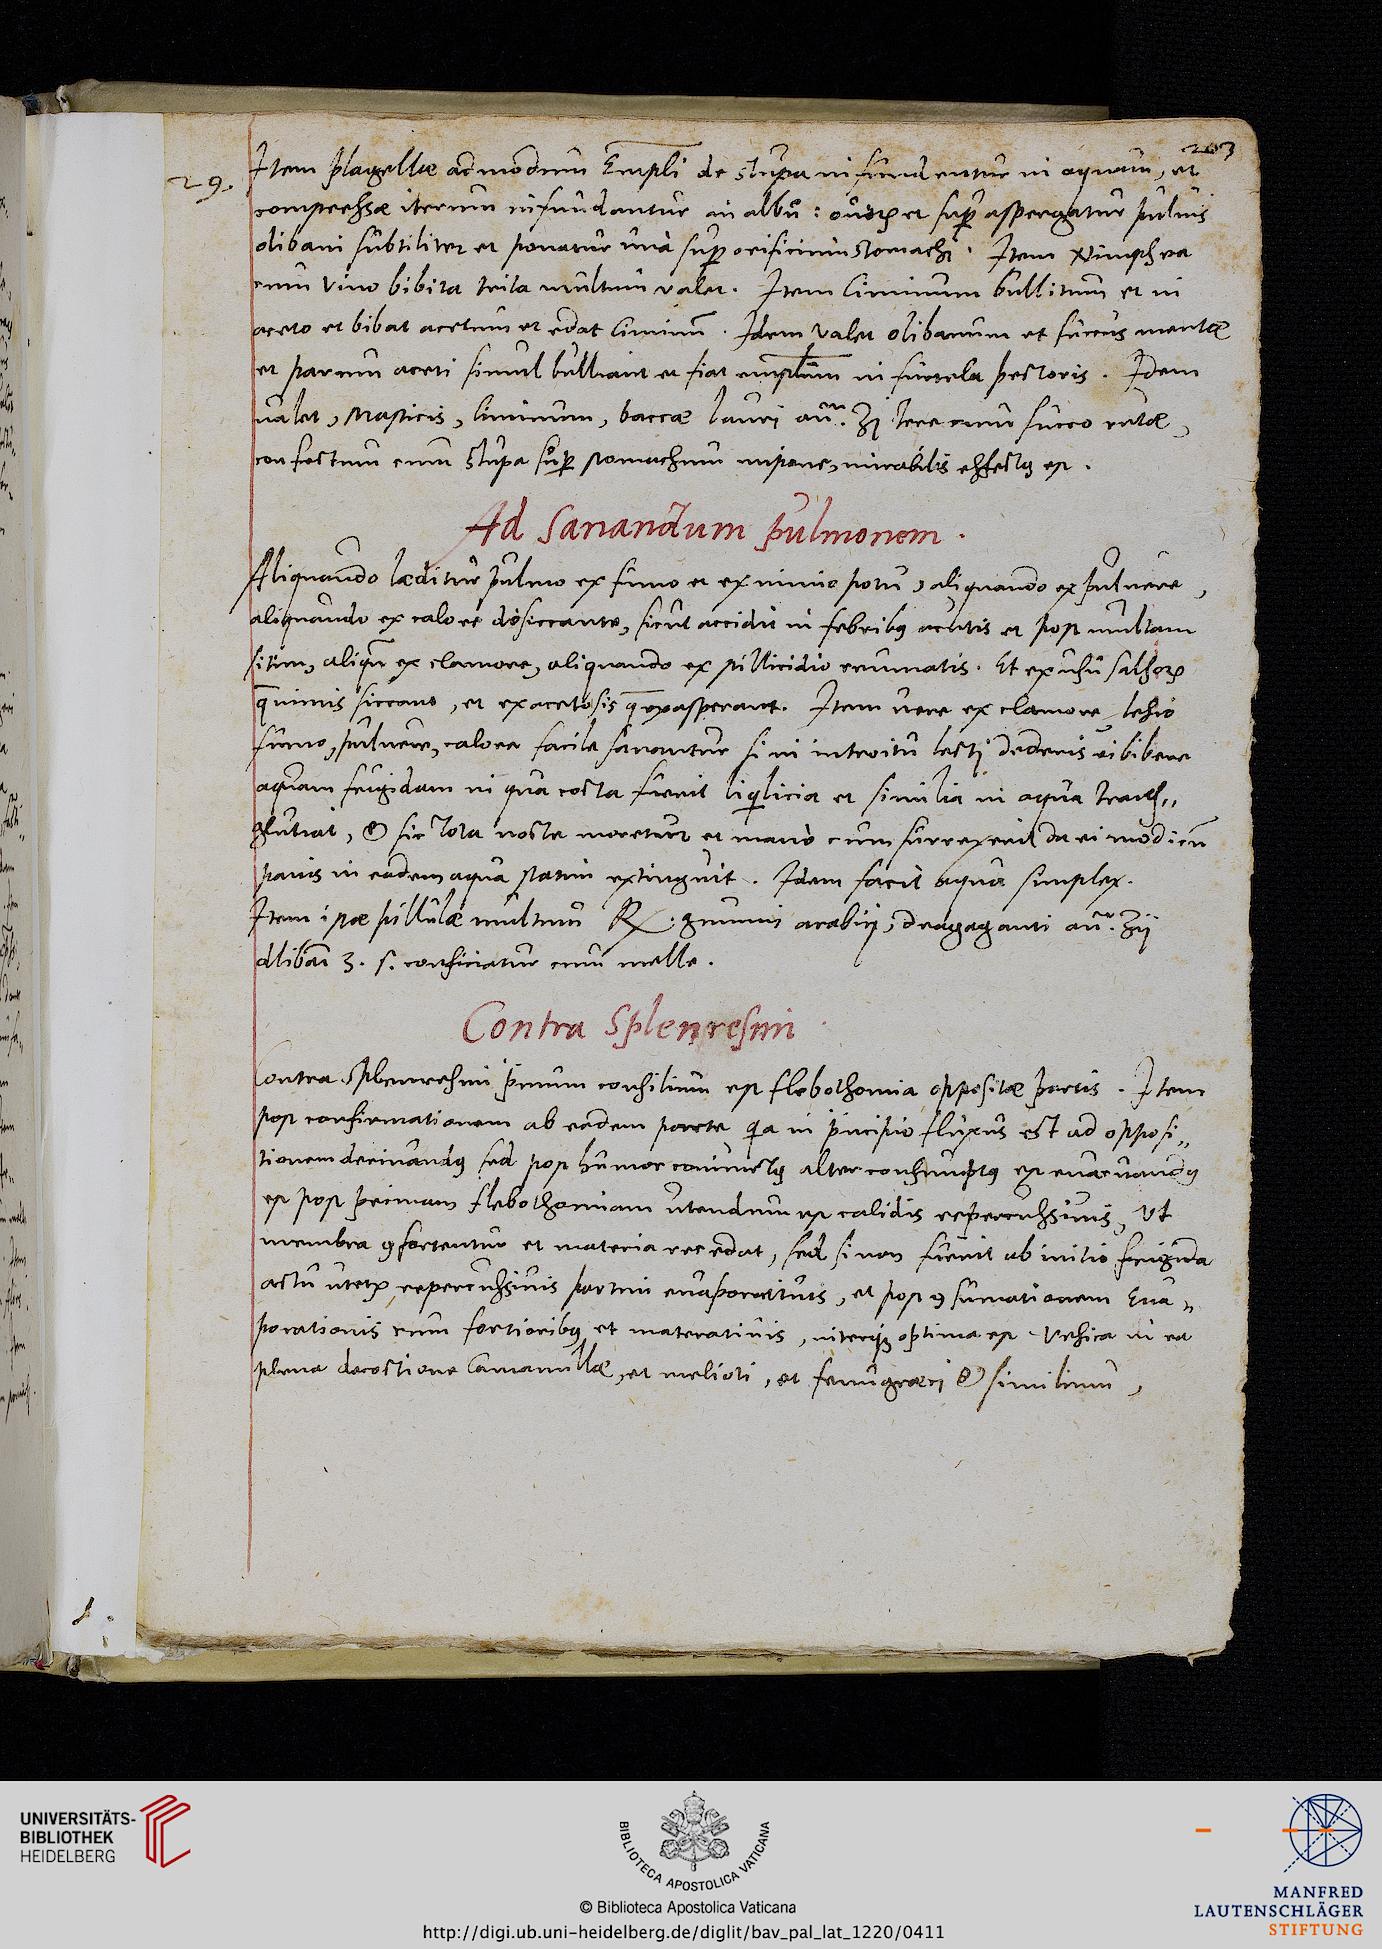 203
29.
Item plagellæ admodum Empli de stupa infundentur in aquam, et
compressæ iterum infundantur in albū: ouorꝝ et suꝑ aspergatur puluis
olibani subtiliter et ponatur una suꝑ orificium stomachi. Item Nimphea
cum vino bibita trita multum valet. Item Ciminum bullitum et in
aceto et bibat acetum et edat Ciminū. Idem valet olibanum et succus mentæ
et parum aceti simul bulliant et fiat emplūm in furcula pectoris. Idem
ualet, Masticis, Ciminum, baccæ lauri anā. ʒj tere cum succo rutæ,
confectum cum stupa suꝑ stomachum impone, mirabilis effectꝰ est.
Ad sanandum pulmonem.
Aliquando læditur pulmo ex fumo et ex nimio potu, aliquando ex puluere,
aliquando ex calore desiccante, sicut accidit in febribꝰ acutis et post multam
sitim, aliqn̄ ex clamore, aliquando ex stillicidio reumatis. Et ex usu salsorꝝ
q̄ nimis siccant, et ex acetosis q̄ exasperant. Item uere ex clamore lesio
fumo, puluere, calore facile sanantur si in introitu lecti dederis ei bibere
aquam frigidam in qua cocta fuerit liqͥlicia et similia in aqua trans„
glutiat, & sic tota nocte moretur et mane cum surrexerit da ei modicū
panis in eadem aqua statim extinguit. Idem facit aqua simplex.
Item ipsæ pillulæ multum ℞. gummi arabici, dragaganti anā. ʒij
olibani ʒ. s. conficiatur cum melle.
Contra Splenresim
Contra splenresim primum consilium est flebothomia oppositæ partis. Item
post confirmationem ab eadem parte, qͥa in principio fluxus est ad opposi„
tionem deriuandꝰ sed post humor coniunctꝰ alter consumptꝰ est euacuandꝰ
est post primam flebothomiam utendum est calidis repercussiuis, Ut
membra ꝯfortentur et materia recedat, sed si non fuerit ab initio frigida
actu utetꝝ repercussiuis partim euaporatiuis, et post ꝯsumationem Eua„
porationis cum fortioribꝰ et maturatiuis, interqꝫ optima est Vesica in ea
plena decoctione Camamillæ, et meliloti, et fenugræci & similium,
UNIVERSITÄTS-
BIBLIOTHEK
HEIDELBERG
BIBLIOTECA APOSTOLICA VATICANA
© Biblioteca Apostolica Vaticana
http://digi.ub.uni-heidelberg.de/diglit/bav_pal_lat_1220/0411
MANFRED
LAUTENSCHLÄGER
STIFTUNG